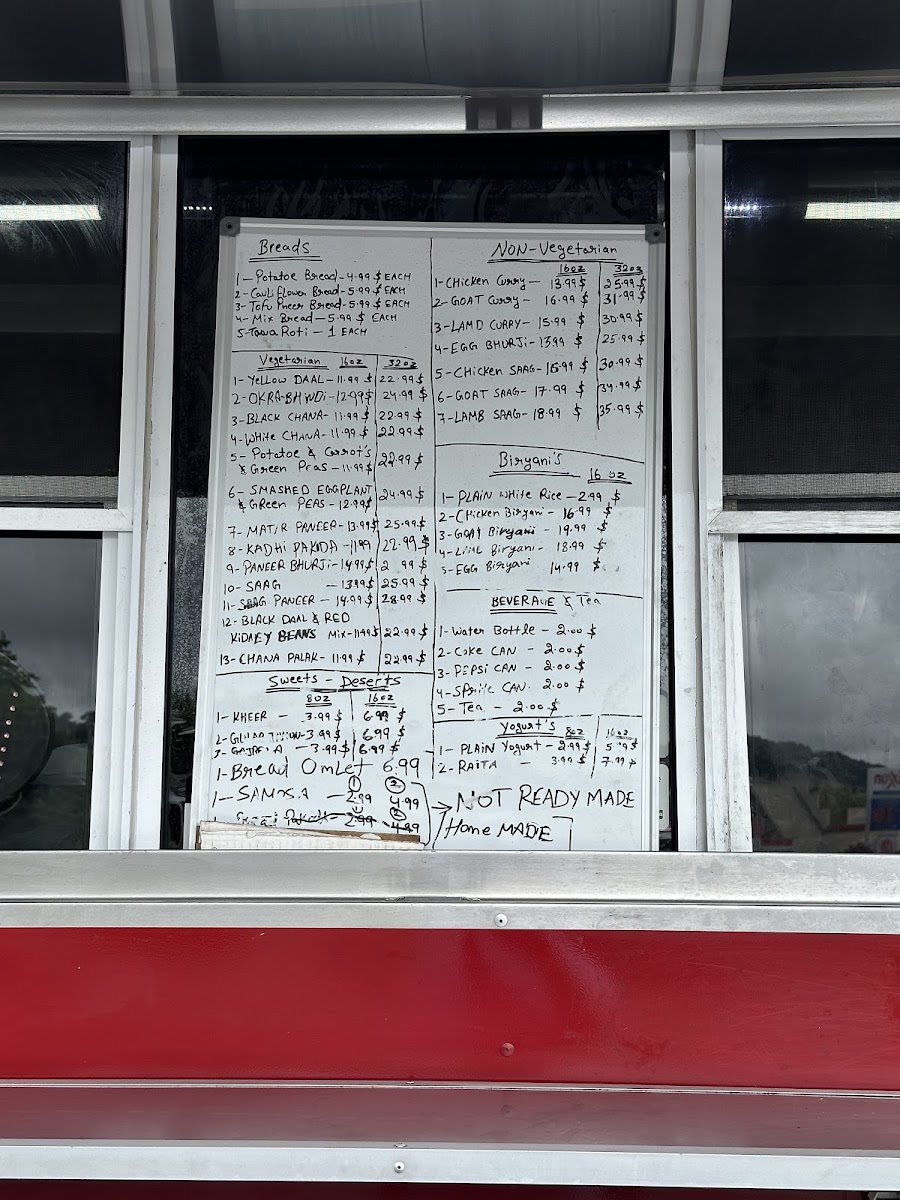 Breads
1- Potatoe Bread - 4.99 $ EACH
2- Cauliflower Bread - 5.99 $ EACH
3- Tofu Paneer Bread - 5.99 $ EACH
4- Mix Bread - 5.99 $ EACH
5- Tawa Roti - 1 EACH
Vegetarian 16oz 32oz
1- YELLOW DAAL - 11.99 $ 22.99 $
2- OKRA-BHINDI - 12.99 $ 24.99 $
3- BLACK CHANA - 11.99 $ 22.99 $
4- WHITE CHANA - 11.99 $ 22.99 $
5- Potatoe & Carrot's
& Green Peas - 11.99 $ 22.99 $
6- SMASHED EGGPLANT
& GReen PEAS - 12.99 $ 24.99 $
7- MATAR PANEER - 13.99 $ 25.99 $
8- KADHI PAKODA - 11.99 22.99 $
9- PANEER BHURJI - 14.99 $ 2 99 $
10- SAAG - 13.99 $ 25.99 $
11- SAAG PANEER - 14.99 $ 28.99 $
12- BLACK DAAL & RED
KIDNEY BEANS MIX - 11.99 $ 22.99 $
13- CHANA PALAK - 11.99 $ 22.99 $
Sweets - Deserts
8oz 16oz
1- KHEER - 3.99 $ 6.99 $
2- 3.99 $ 6.99 $
3- 3.99 $ 6.99 $
1- Bread OmLet 6.99
① ②
1- SAMOSA - 2.99 4.99
2.99 4.99
NON-Vegetarian
16oz 32oz
1- CHicken Curry - 13.99 $ 25.99 $
2- GOAT Curry - 16.99 $ 31.99 $
3- LAMD CURRY - 15.99 $ 30.99 $
4- EGG BHURJI - 13.99 $ 25.99 $
5- CHicken SAAG - 15.99 $ 30.99 $
6- GOAT SAAG - 17.99 $ 34.99 $
7- LAMB SAAG - 18.99 $ 35.99 $
Biryani's
16 oz
1- PLAIN WHITE Rice - 2.99 $
2- CHicken Biryani - 16.99 $
3- GOAT Biryani - 19.99 $
4- Biryani - 18.99 $
5- EGG Biryani 14.99 $
BEVERAGE & Tea
1- Water Bottle - 2.00 $
2- Coke CAN - 2.00 $
3- PEPSI CAN - 2.00 $
4- SPrite CAN - 2.00 $
5- Tea - 2.00 $
Yogurt's 8oz 16oz
1- PLAIN Yogurt - 2.99 $ 5.99 $
2- RAITA - 3.99 $ 7.99 $
NOT READY MADE
Home MADE